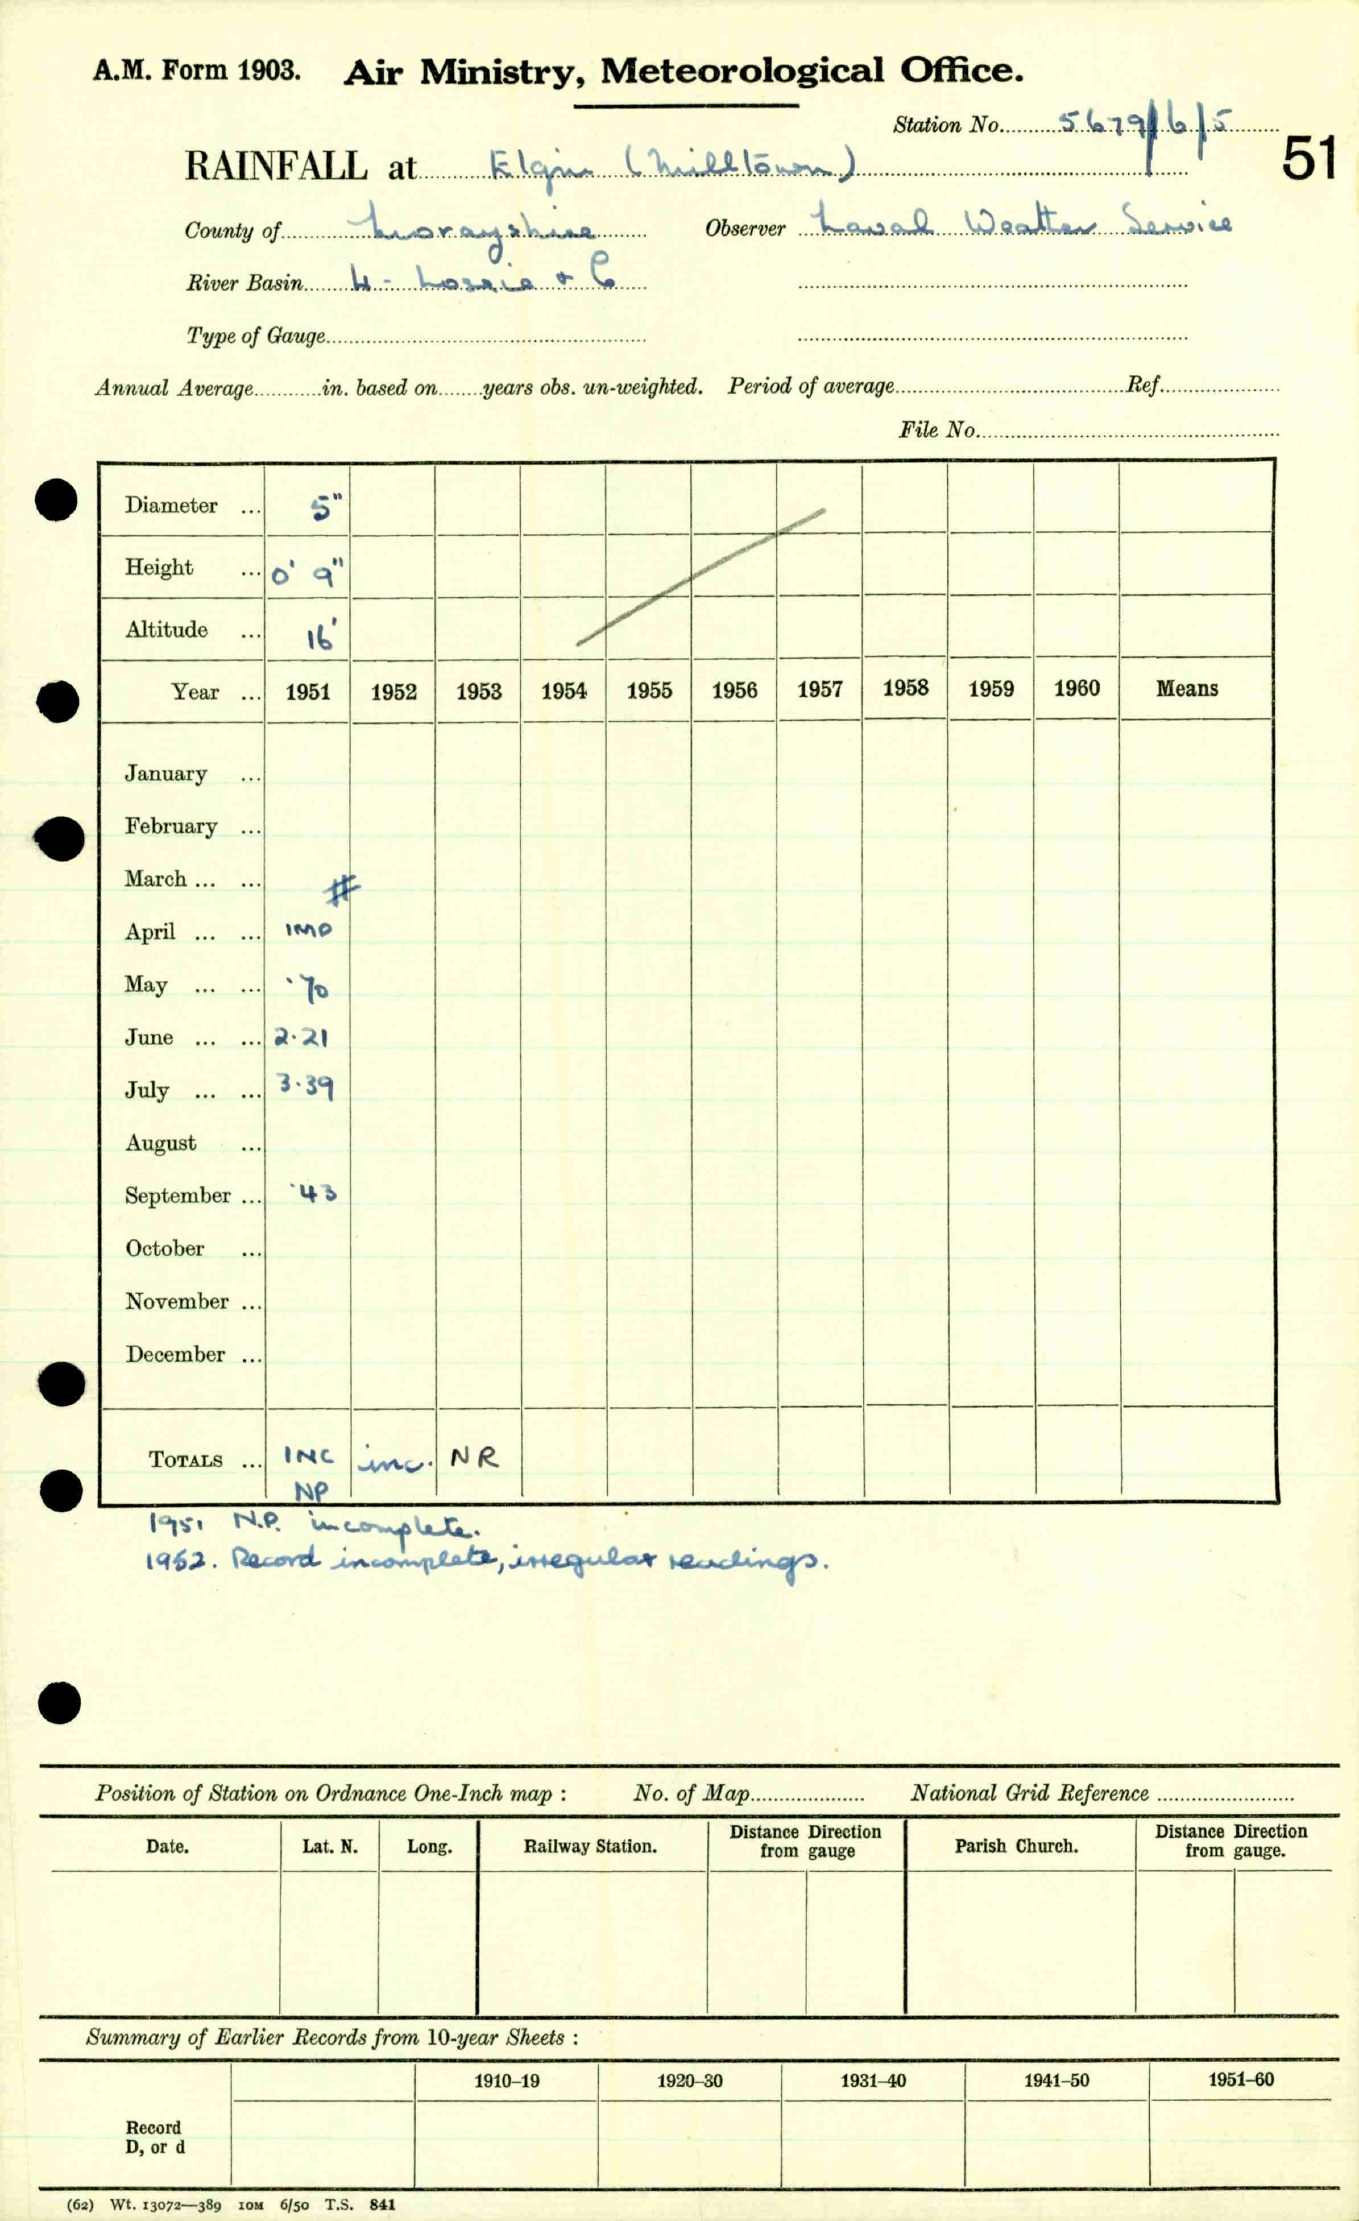 A.M. Form 1903. Air Ministry, Meteorological Office.
Station No. 5679/6/5
51
RAINFALL at Elgin (Milltown)
County of Morayshire Observer Naval Weather Service
River Basin 4 - Lossie & C
Type of Gauge
Annual Average in. based on years obs. un-weighted. Period of average Ref.
File No.
Diameter ... 5"
Height ... 0' 9"
Altitude ... 16'
Year ... 1951 1952 1953 1954 1955 1956 1957 1958 1959 1960 Means
January ...
February ...
March ... ... #
April ... ... IMP
May ... ... ·70
June ... ... 2·21
July ... ... 3·39
August ...
September ... ·43
October ...
November ...
December ...
TOTALS ... INC inc. NR
NP
1951 N.P. incomplete.
1952. Record incomplete, irregular readings.
Position of Station on Ordnance One-Inch map : No. of Map National Grid Reference
Date. Lat. N. Long. Railway Station. Distance from Direction gauge Parish Church. Distance from Direction gauge.
Summary of Earlier Records from 10-year Sheets :
1910–19 1920–30 1931–40 1941–50 1951–60
Record
D, or d
(62) Wt. 13072—389 10M 6/50 T.S. 841